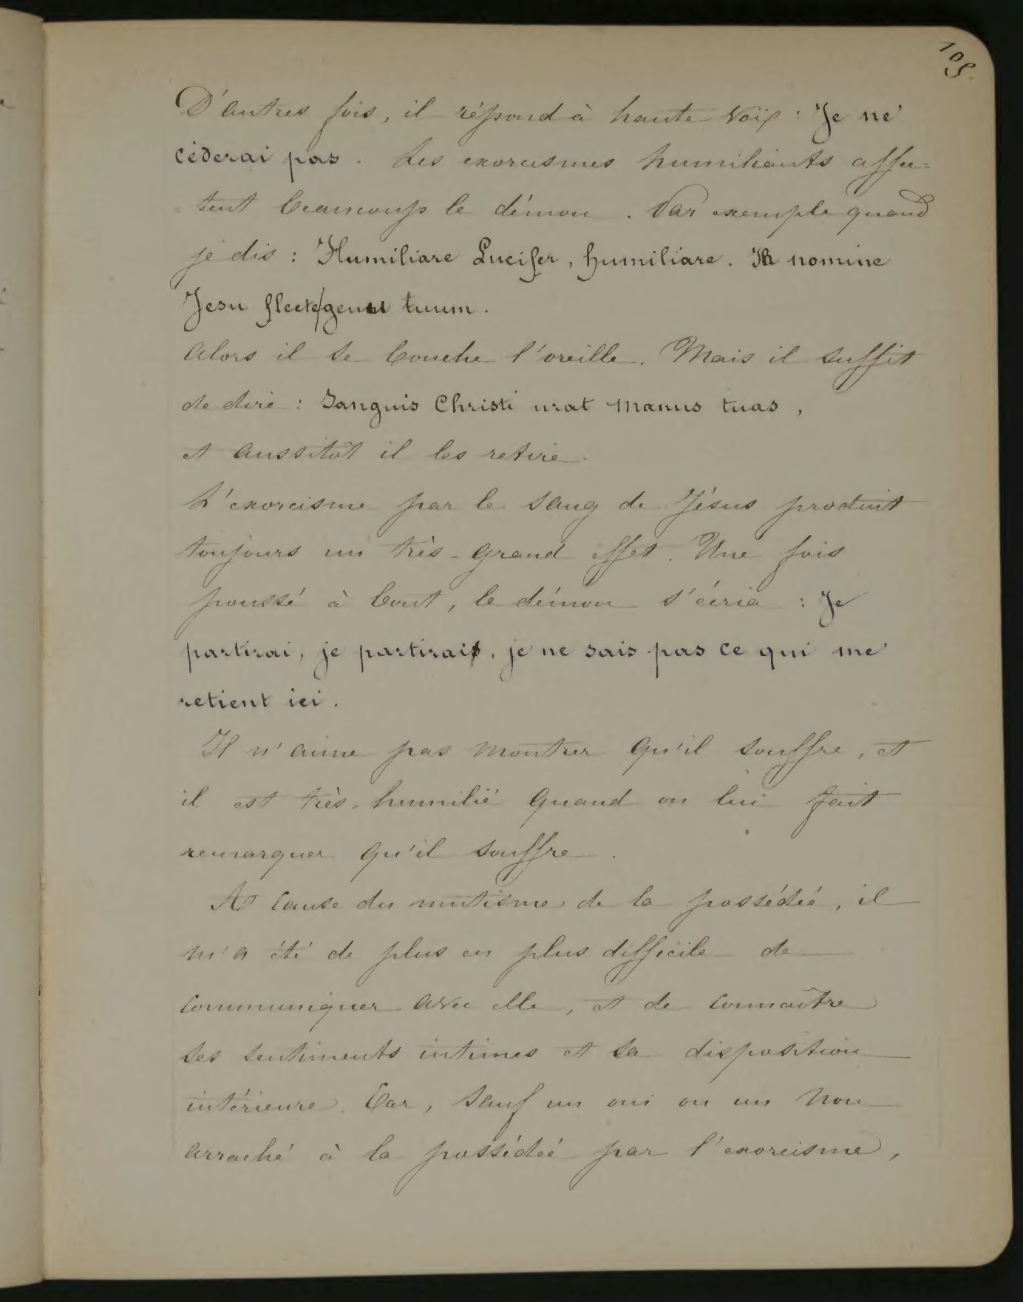 105.
D'autres fois, il répond à haute voix : Je ne
céderai pas. Les exorcismes humiliants affec=
tent beaucoup le démon. Par exemple quand
je dis : Humiliare Lucifer, humiliare. In nomine
Jesu flecte genu tuum.
Alors il se bouche l'oreille. Mais il suffit
de dire : Sanguis Christi urat manus tuas,
et aussitôt il les retire.
L'exorcisme par le sang de Jésus produit
toujours un très-grand effet. Une fois
poussé à bout, le démon s'écria : Je
partirai, je partirais, je ne sais pas ce qui me
retient ici.
Il n'aime pas montrer qu'il souffre, et
il est très-humilié quand on lui fait
remarquer qu'il souffre.
A cause du mutisme de la possédée, il
m'a été de plus en plus difficile de
communiquer avec elle, et de connaître
ses sentiments intimes et sa disposition
intérieure. Car, sauf un oui ou un non
arraché à la possédée par l'exorcisme,